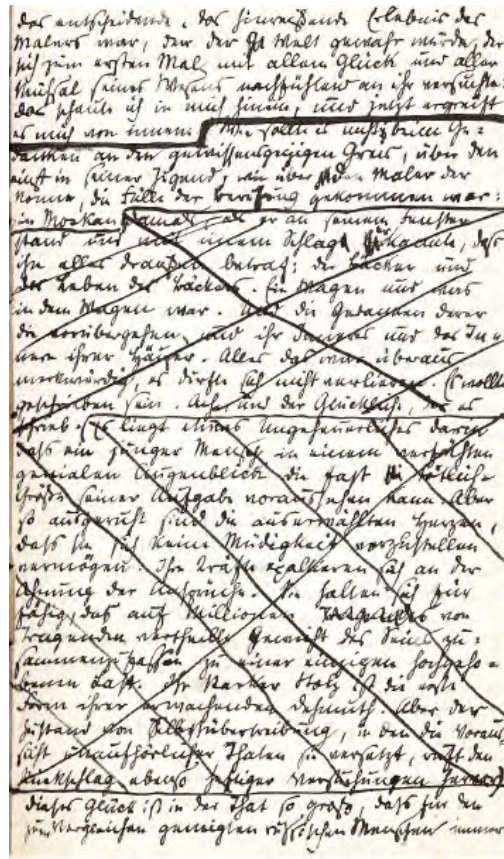 das entscheidende, das hinreißende Erlebnis des
Malers war, der der Welt gewahr wurde, der
sich zum ersten Mal mit allem Glück und aller
Mühsal seines Wesens nachfühlend an ihr versuchte:
das schaute ich in mich hinein, und jetzt ergreift
es mich von innen. Wie sollte es nicht beim Ge-
danken an den Greis, über den
einst in seiner Jugend, wie über jeden Maler der
Sonne, die Fülle der Berufung gekommen war:
in Moskau, damals, als er an seinem Fenster
stand und mit einem Schlag erkannte, daß
ihn alles draußen betraf: der Bäcker und
das Leben des Bäckers. Ein Wagen und was
in dem Wagen war. Und die Gedanken derer
die vorübergehen, und ihr Inneres und das In-
nere ihrer Häuser. Alles das war überaus
merkwürdig, es durfte sich nicht verlieren. Es wollte
geschrieben sein. Ach, und der Glückliche, der es
schrieb. Es liegt etwas Ungeheuerliches darin
daß ein junger Mensch in einem erhöhten
genialen Augenblick die fast
Größe seiner Aufgabe voraussehen kann. Aber
so ausgeruht sind die auserwählten Herzen,
daß sie sich keine Müdigkeit vorzustellen
vermögen. Ihre Kräfte exaltieren sich an der
Ahnung der Ansprüche. Sie halten sich für
fähig, das auf Millionen von
Tragenden vertheilte Gewicht des Seins zu-
sammenzufassen zu einer einzigen hochgeho-
benen Last. Ihr starker Stolz ist die erste
Form ihrer erwachenden Demuth. Aber der
Zustand von Selbstübertreibung, in den die Voraus-
sicht unaufhörlicher Thaten sie versetzt, ruft den
Rückschlag ebenso heftiger hervor
Dieses Glück ist in der That so groß, daß für den
zum Vergleichen geneigten russischen Menschen immer